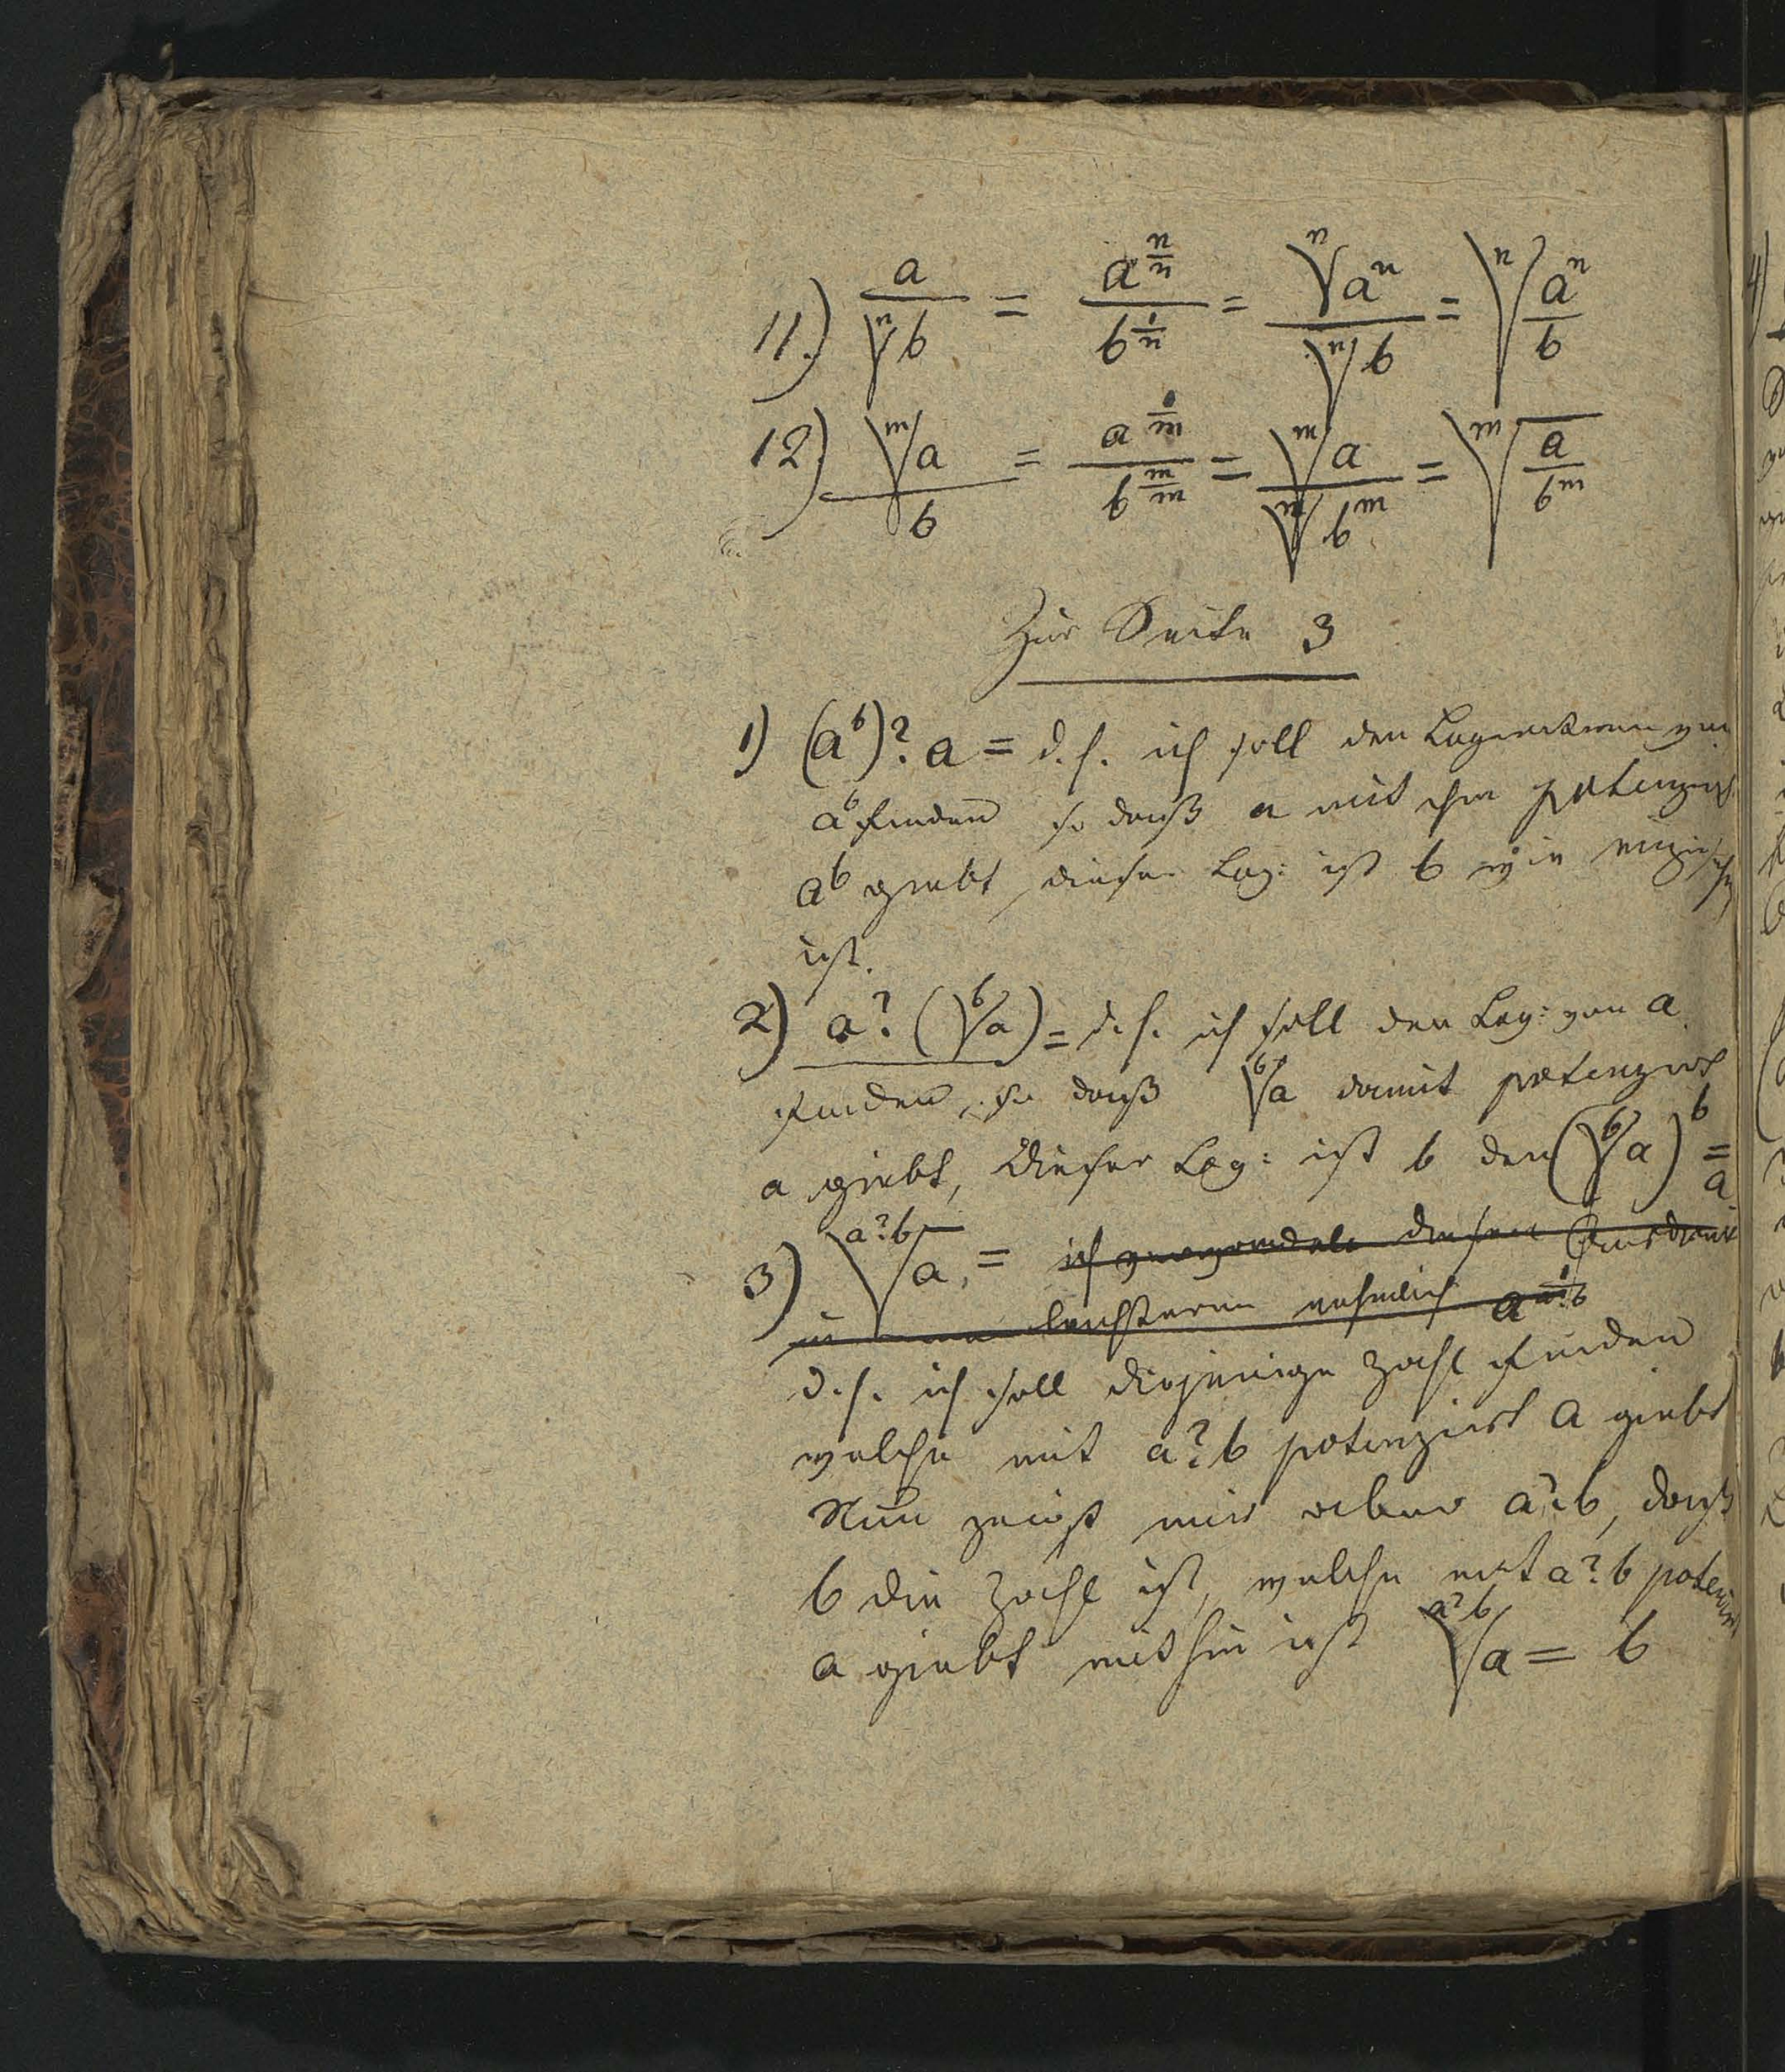 11.) a/ⁿ√b = a^(n/n)/b^(1/n) = ⁿ√aⁿ/ⁿ√b = ⁿ√(aⁿ/b)
12) ᵐ√a/b = a^(1/m)/b^(m/m) = ᵐ√a/ᵐ√bᵐ = ᵐ√(a/bᵐ)
Zur Seite 3
1) (aᵇ)?a = d.h. ich soll den von
aᵇ finden so daß a mit ihm potenzirt
aᵇ giebt, dieser Log: ist b wie
ist.
2) a?(ᵇ√a) = d.h. ich soll den Log: von a
finden, so daß ᵇ√a damit potenzirt
a giebt, Dieser Log: ist b den (ᵇ√a)ᵇ =
a
3) ᵃ?ᵇ√a = ich diesen Ausdruck
in leichteren nehmlich a^(1/a?b)
d.h. ich soll diejenige Zahl finden
welche mit a?b potenzirt a giebt
Nun zeigt mir aber a?b, daß
b die Zahl ist, welche mit a?b potenzirt
a giebt mithin ist ᵃ?ᵇ√a = b